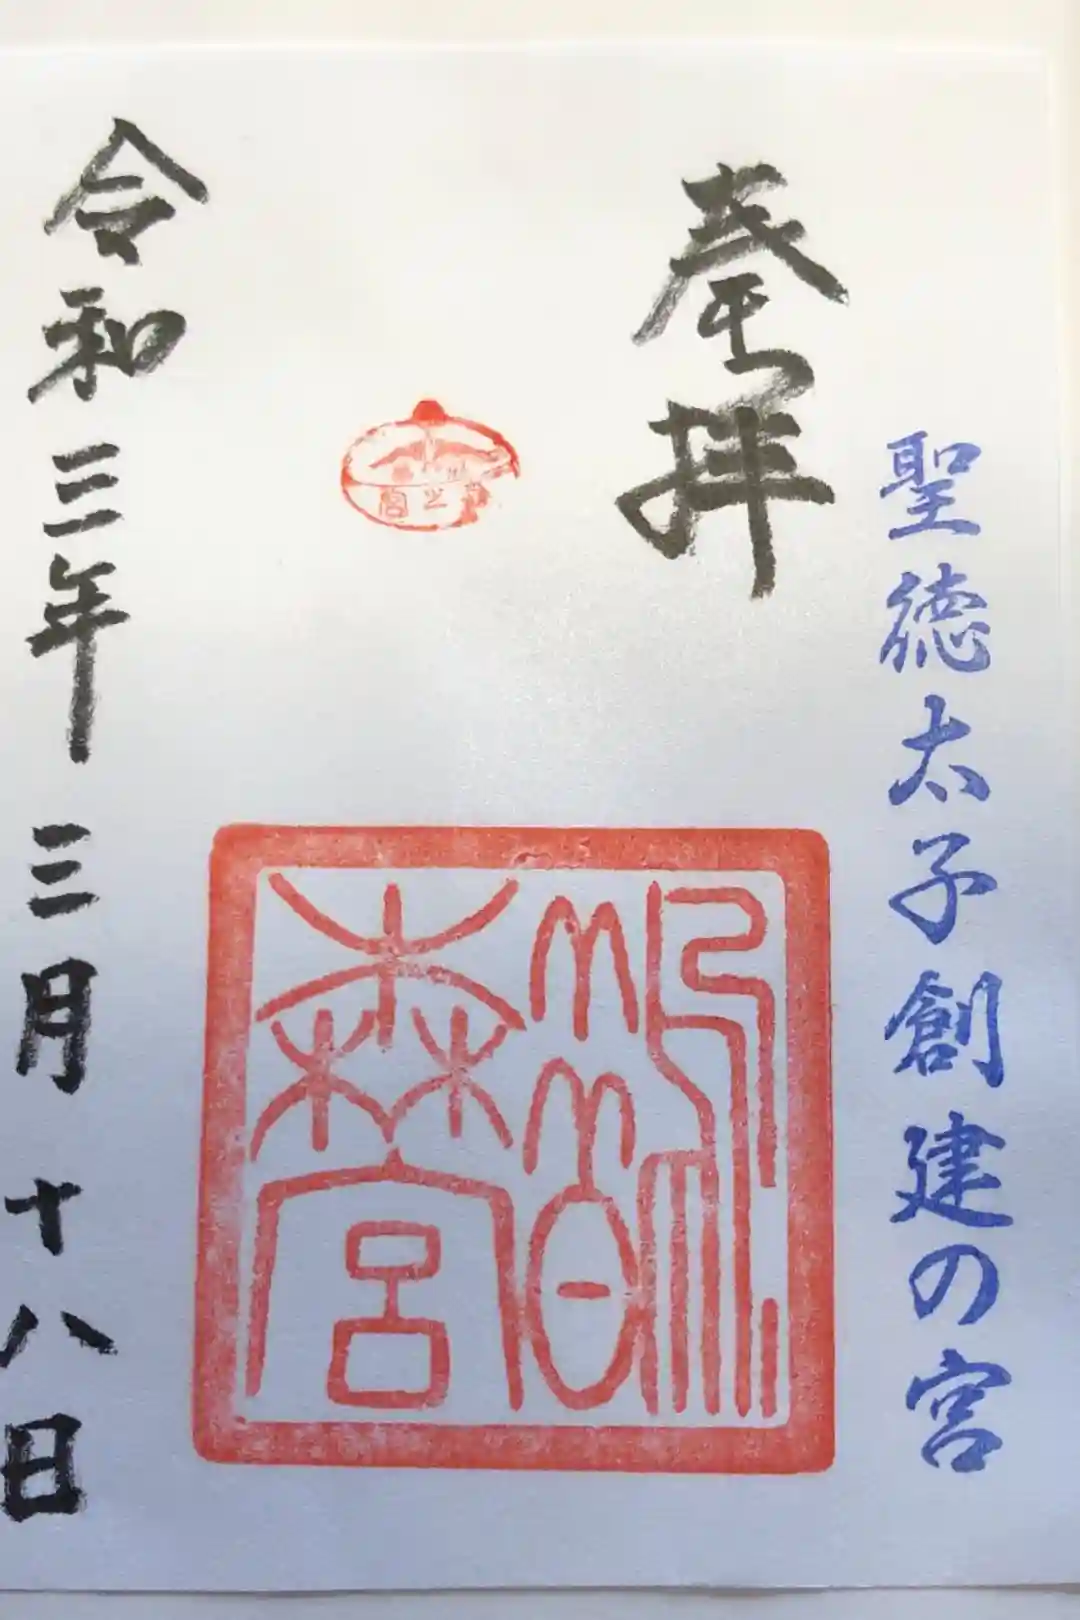 聖徳太子創建の宮
奉拝
鵲森宮
令和三年三月十八日